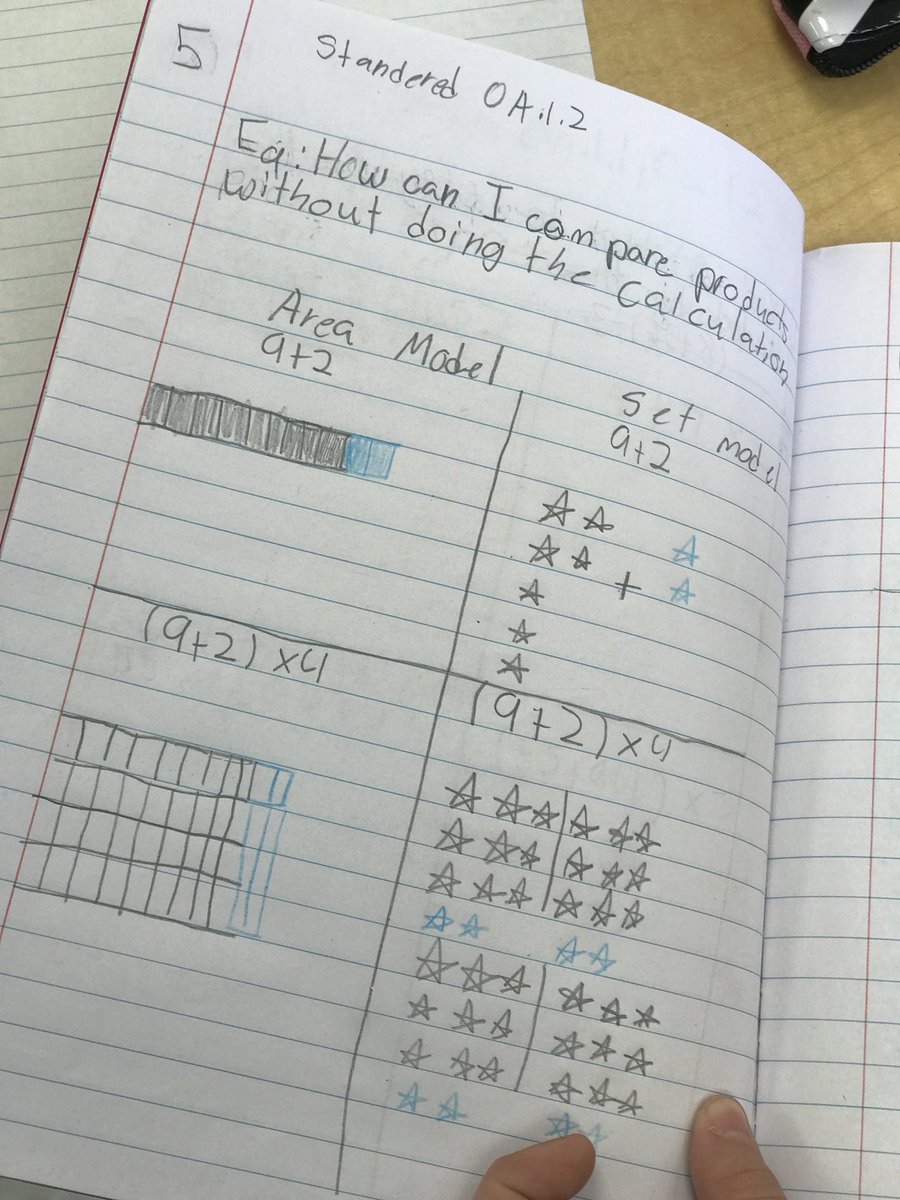 5
Standered OA.1.2
Eq: How can I compare products
without doing the Calculation
Area Model
9+2
Set model
9+2
+
(9+2) x4
(9+2) x4